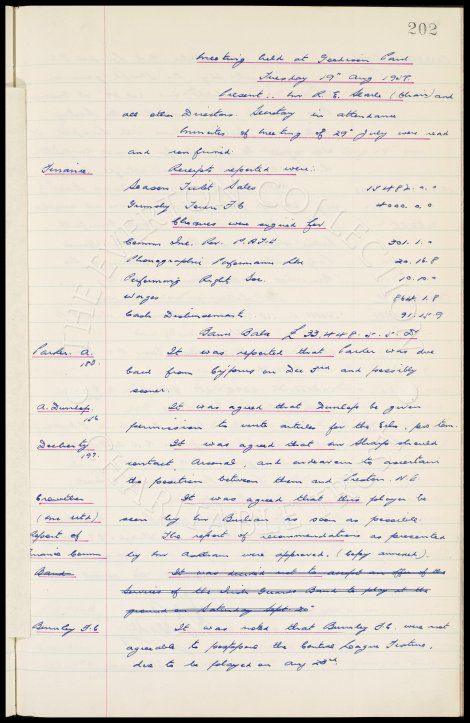 202
Meeting held at Goodison Park
Tuesday 19th Aug
Present:- Mr R. E. Searle (Chair) and
all other Directors. Secretary in attendance
Minutes of meeting of 29th July were read
and confirmed.
Finance. Receipts reported were:-
Season Ticket Sales
Grimsby Town F.C 4000. 0. 0
Cheques were signed for
Comm. Inl. Rev. P.A.Y.E 301. 1. 0
Phonographic Performance Ltd 20. 16. 8
Performing Right Soc. 10. 10. 0
Wages 864. 1. 8
Cash Disbursements 91. 15. 9
Bank Bal. £ 33,448. 5. 5.
Parker. A. It was reported that Parker was due
183. back from Cyprus on Dec 3rd and possibly
sooner.
A. Dunlop It was agreed that Dunlop be given
permission to write articles for the Echo,
Docherty It was agreed that Mr Sharp should
197. contact, Arsenal, and endeavour to ascertain
the position between them and Preston. N.E
Crowther It was agreed that this player be
seen by Mr as soon as possible.
Report of The report of recommendations as presented
Finance Comm by Mr were approved. (copy annexed).
Band. It was decided not to accept an offer of the
Services of the Irish Guards Band to play at the
ground on Saturday Sept
Burnley F.C It was noted that Burnley F.C. were not
agreeable to postpone the Central League Fixture,
due to be played on Aug 23rd.
THE EVERTON COLLECTION
CHARITABLE